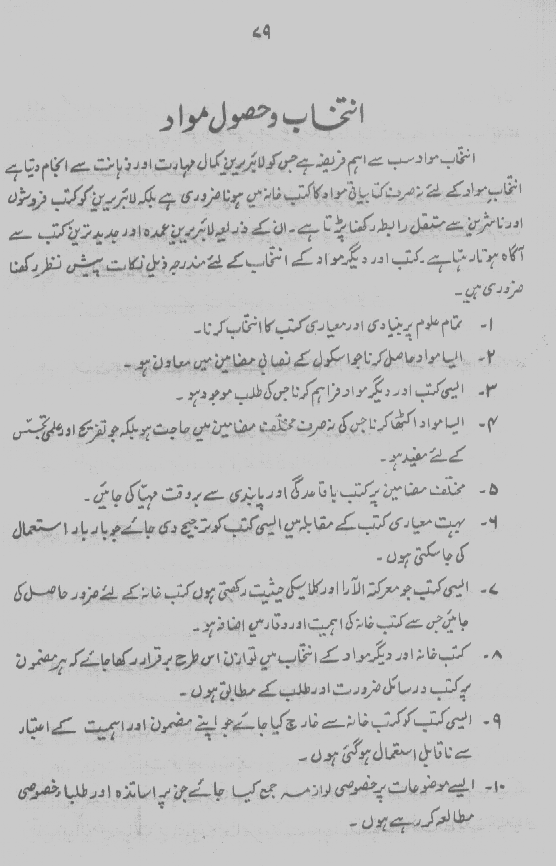 ۷۹
انتخاب و حصول مواد
انتخاب مواد سب سے اہم فریضہ ہے جس کو لائبریرین کمال مہارت اور ذہانت سے انجام دیتا ہے
انتخاب مواد کے لئے نہ صرف کتابیاتی مواد کا کتب خانہ میں ہونا ضروری ہے بلکہ لائبریرین کو کتب فروشوں
اور ناشرین سے مستقل رابطہ رکھنا پڑتا ہے۔ ان کے ذریعہ لائبریرین عمدہ اور جدید ترین کتب سے
آگاہ ہوتا رہتا ہے۔ کتب اور دیگر مواد کے انتخاب کے لئے مندرجہ ذیل نکات پیش نظر رکھنا
ضروری ہیں۔
۱۔ تمام علوم پر بنیادی اور معیاری کتب کا انتخاب کرنا۔
۲۔ ایسا مواد حاصل کرنا جو اسکول کے نصابی مضامین میں معاون ہو۔
۳۔ ایسی کتب اور دیگر مواد فراہم کرنا جس کی طلب موجود ہو۔
۴۔ ایسا مواد اکٹھا کرنا جس کی نہ صرف مختلف مضامین میں حاجت ہو بلکہ جو تفریح اور علمی تجسّس
کے لئے مفید ہو۔
۵۔ مختلف مضامین پر کتب باقاعدگی اور پابندی سے بروقت مہیّا کی جائیں۔
۶۔ بہت معیاری کتب کے مقابلہ میں ایسی کتب کو ترجیح دی جائے جو بار بار استعمال
کی جا سکتی ہوں۔
۷۔ ایسی کتب جو معرکتہ الآرا اور کلاسیکی حیثیت رکھتی ہوں کتب خانہ کے لئے ضرور حاصل کی
جائیں جس سے کتب خانہ کی اہمیت اور وقار میں اضافہ ہو۔
۸۔ کتب خانہ اور دیگر مواد کے انتخاب میں توازن اس طرح برقرار رکھا جائے کہ ہر مضمون
پر کتب و رسائل ضرورت اور طلب کے مطابق ہوں۔
۹۔ ایسی کتب کو کتب خانہ سے خارج کیا جائے جو اپنے مضمون اور اہمیت کے اعتبار
سے ناقابل استعمال ہو گئی ہوں۔
۱۰۔ ایسے موضوعات پر خصوصی لوازمہ جمع کیا جائے جن پر اساتذہ اور طلبا خصوصی
مطالعہ کر رہے ہوں۔